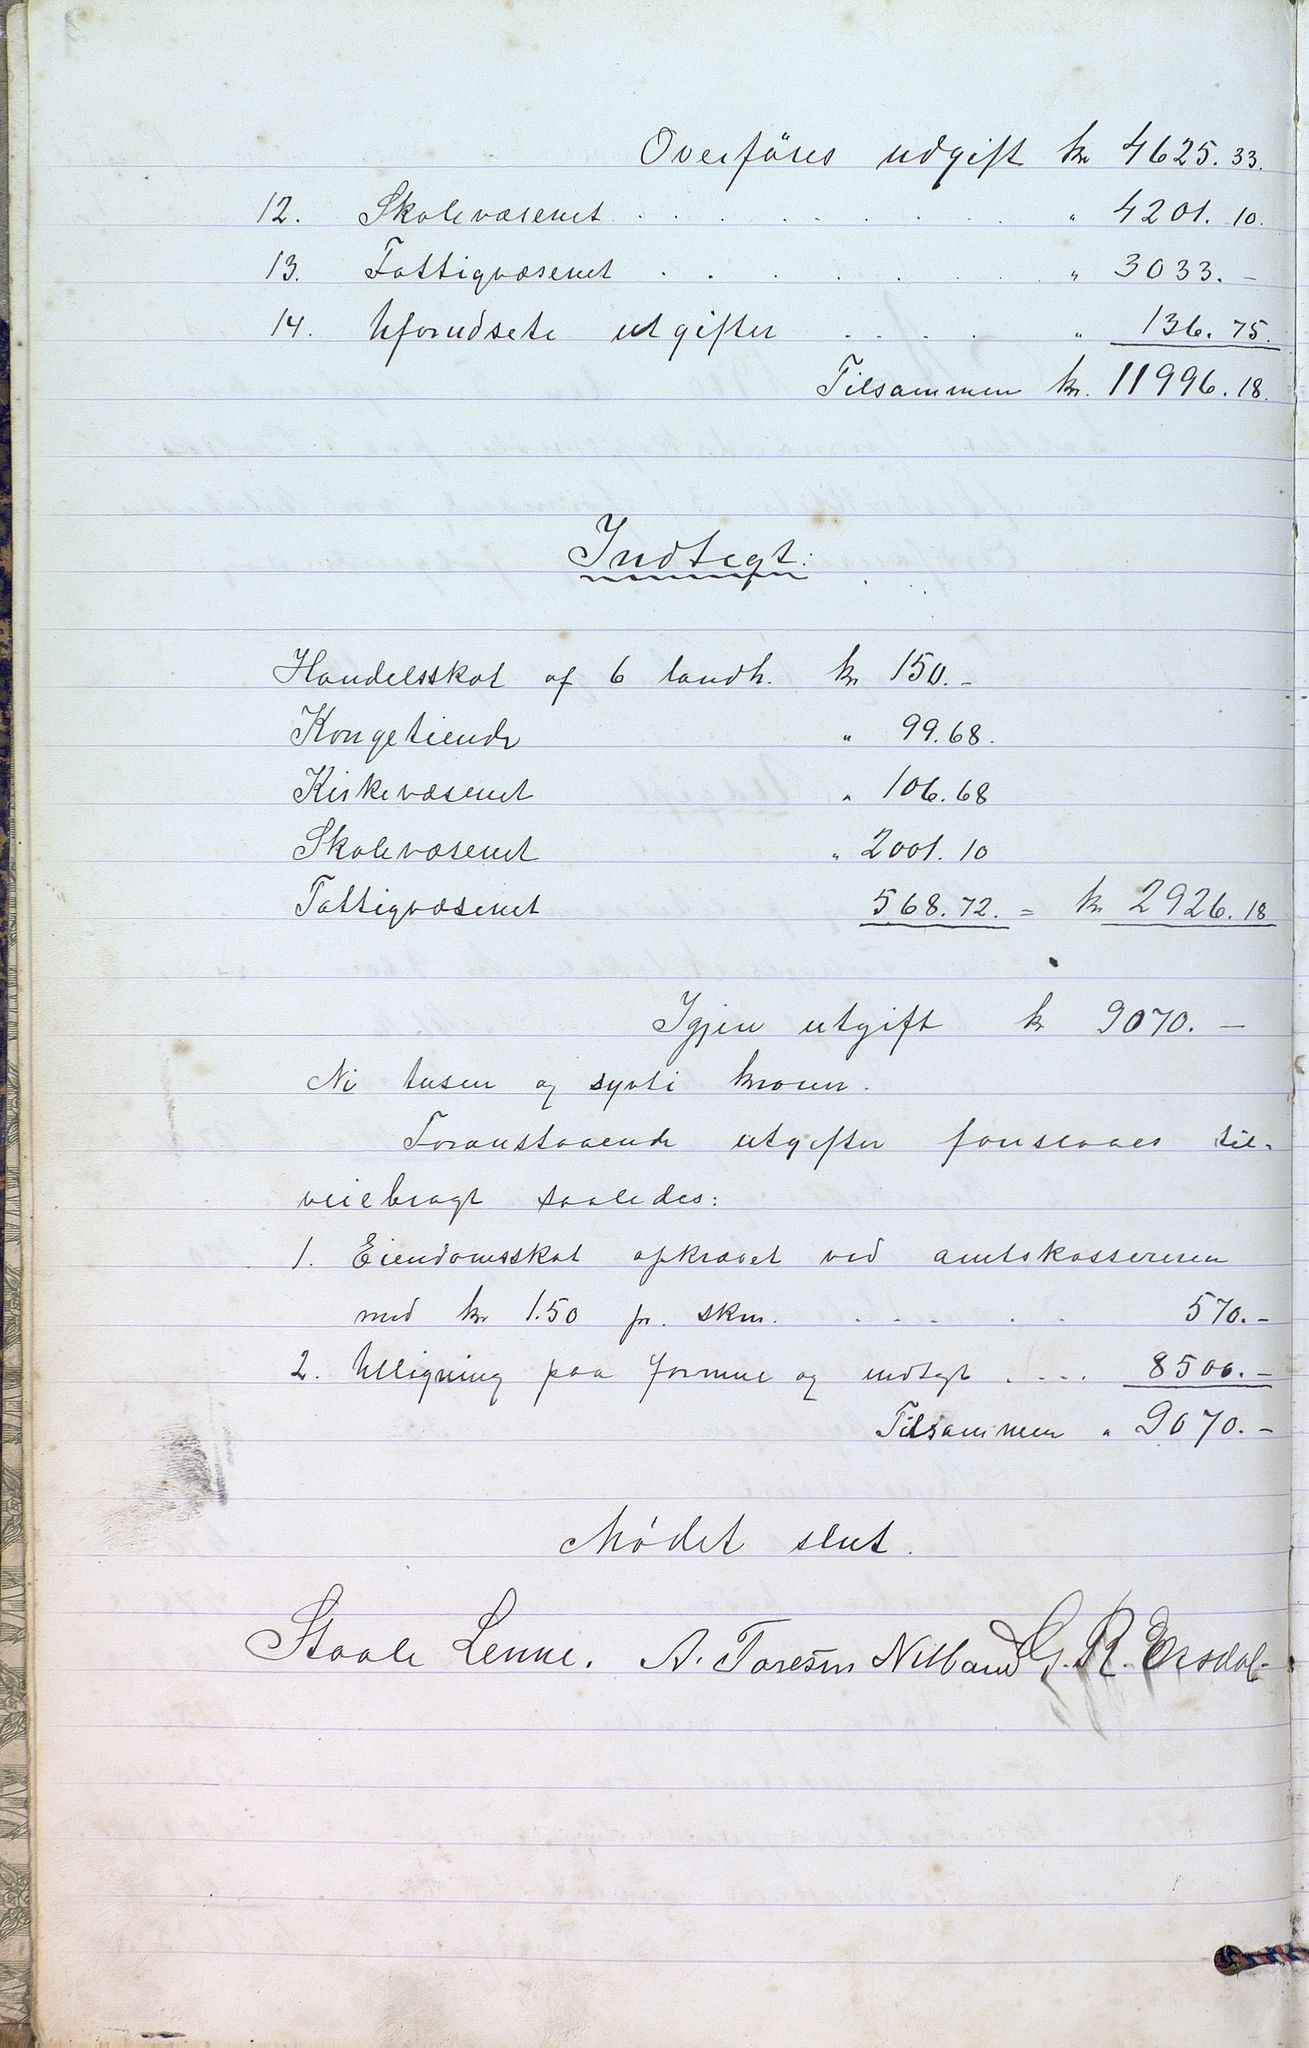 Overföres udgift kr 4625.33.
12. Skolevæsenet . . . . . . . . " 4201.10.
13. Fattigvæsenet . . . . . . . " 3033.–
14. Uforudsete utgifter . . . . " 136.75.
Tilsammen kr. 11996.18.
Indtegt:
Handelsskat af 6 landh. kr 150.–
Kongetiende " 99.68.
Kirkevæsenet " 106.68
Skolevæsenet " 2001.10
Fattigvæsenet 568.72. = kr 2926.18
Igjen utgift kr 9070.–
Ni tusen og sytti kroner.
Foranstaaende utgifter foreslaaes til-
veiebragt saaledes:
1. Eiendomsskat opkrævet ved amtskassereren
med kr 1.50 pr. skm. . . . . . 570.–
2. Utligning paa formue og indtegt . . . . 8500.–
Tilsammen " 9070.–
Mødet slut.
Staale Lenne. A. Toresen Netland G. R. Ersdal.